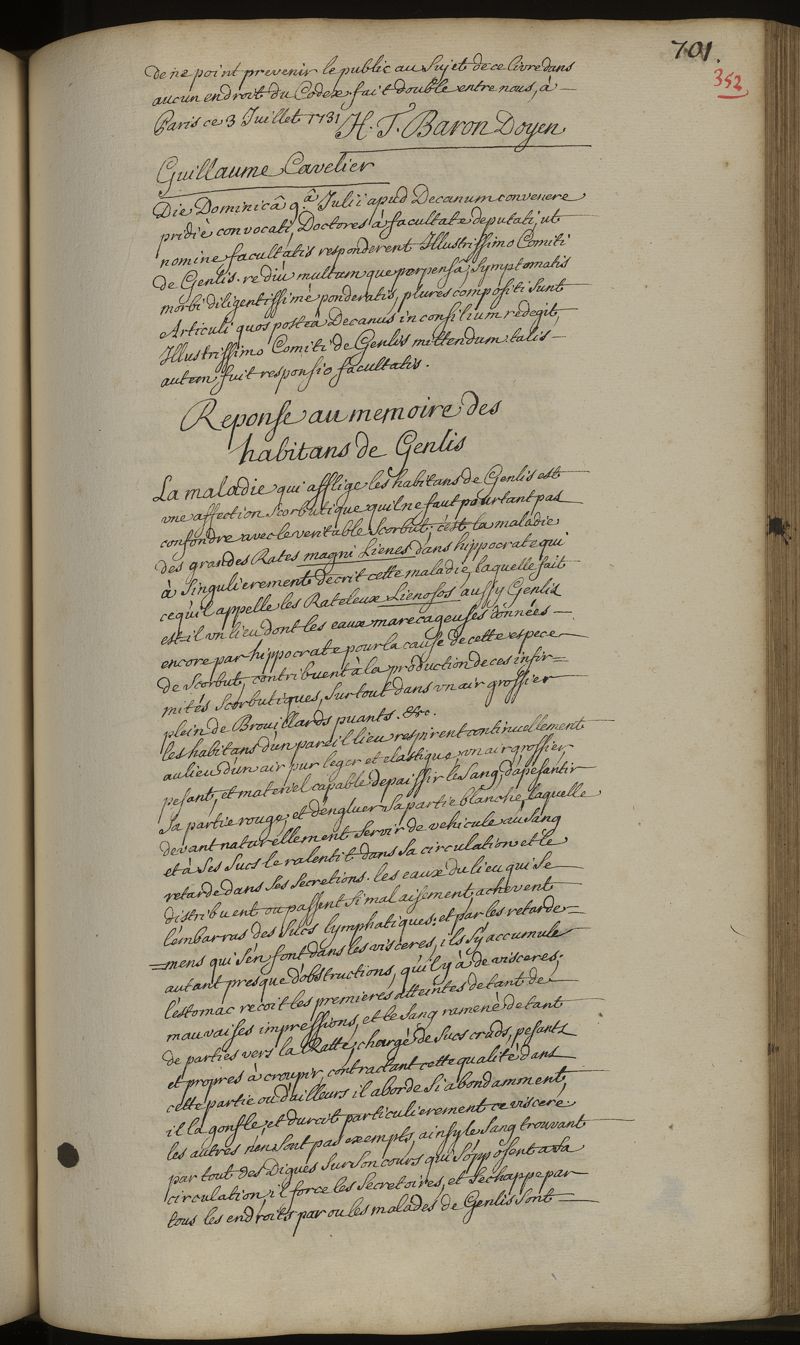 701.
352
de ne point prevenir le public au Sujet de ce livre dans
aucun endroit du Codex fait double entre nous, à —
Paris ce 3 Juillet 1731 H. T. Baron Doyen
Guillaume Cavelier
Die Dominicâ 9.â Julii apud Decanum convenere
pridiè convocati, Doctores à facultate deputati, ut
nomine facultatis responderent Illustrissimo Comiti
de Genlis. re diù multumque perpensâ, Symptomatis
morbi diligentissimè ponderatis, plures compositi Sunt
Articuli quos posteà Decanus in consilium redegit,
Illustrissimo Comiti de Genlis mittendum talis —
autem fuit responsio facultatis.
Reponse au memoire des
habitans de Genlis
La maladie qui afflige les habitans de Genlis est
une affection Scorbutique qu'il ne faut pourtant pas
confondre avec le veritable Scorbut, c'est la maladie
des grandes Rates magni Lienes dans hippocrate qui
à Singulierement décrit cette maladie, laquelle fait
ce qu'il appelle les Rateleux Lienosos aussy Genlis
est-il un lieu dont les eaux marecageuses données —
encore par hippocrate pour la cause de cette espece
de Scorbut, contribuent à la production de ces infir=
mités Scorbutiques, Surtout dans un air grossier
plein de Brouillards puants. &c.
les habitans d'un pareil lieu respirent continuellement
au lieu d'un air pur leger et elastique, un air grossier,
pesant, et materiel capable depaissir le Sang, d'apesantir
Sa partie rouge, et d'engluer Sa partie blanche, laquelle
devant naturellement Servir de vehicule au Sang
et à Ses Sucs le ralentit dans Sa circulation et le
retarde dans Ses Secretions. les eaux du lieu qui Se
distribuent ou passent Si mal aisement, achevent
l'embarras des Sucs lymphatiques; et par les retarde=
=mens qui S'en font dans les visceres, il S'y accumule
autant presque d'obstructions, qu'il y à de visceres;
l'estomac recoit les premieres atteintes de tant de
mauvaises impressions, et le Sang ramené de tant
de parties vers la Ratte, chargé de Sucs cruds, pesants
et propres à croupir, contractant cette qualité dans
cette partie ou d'ailleurs il aborde Si abondamment,
il la gonfle, et durcit particulierement ce viscere.
les autres n'en Sont pas exempts, ainsy le Sang trouvant
par tout des Digues Sur Son cours qui S'opposent a Sa
circulation, il force les Secretoires, et S'echappe par
tous les endroits par ou les malades de Genlis Sont —